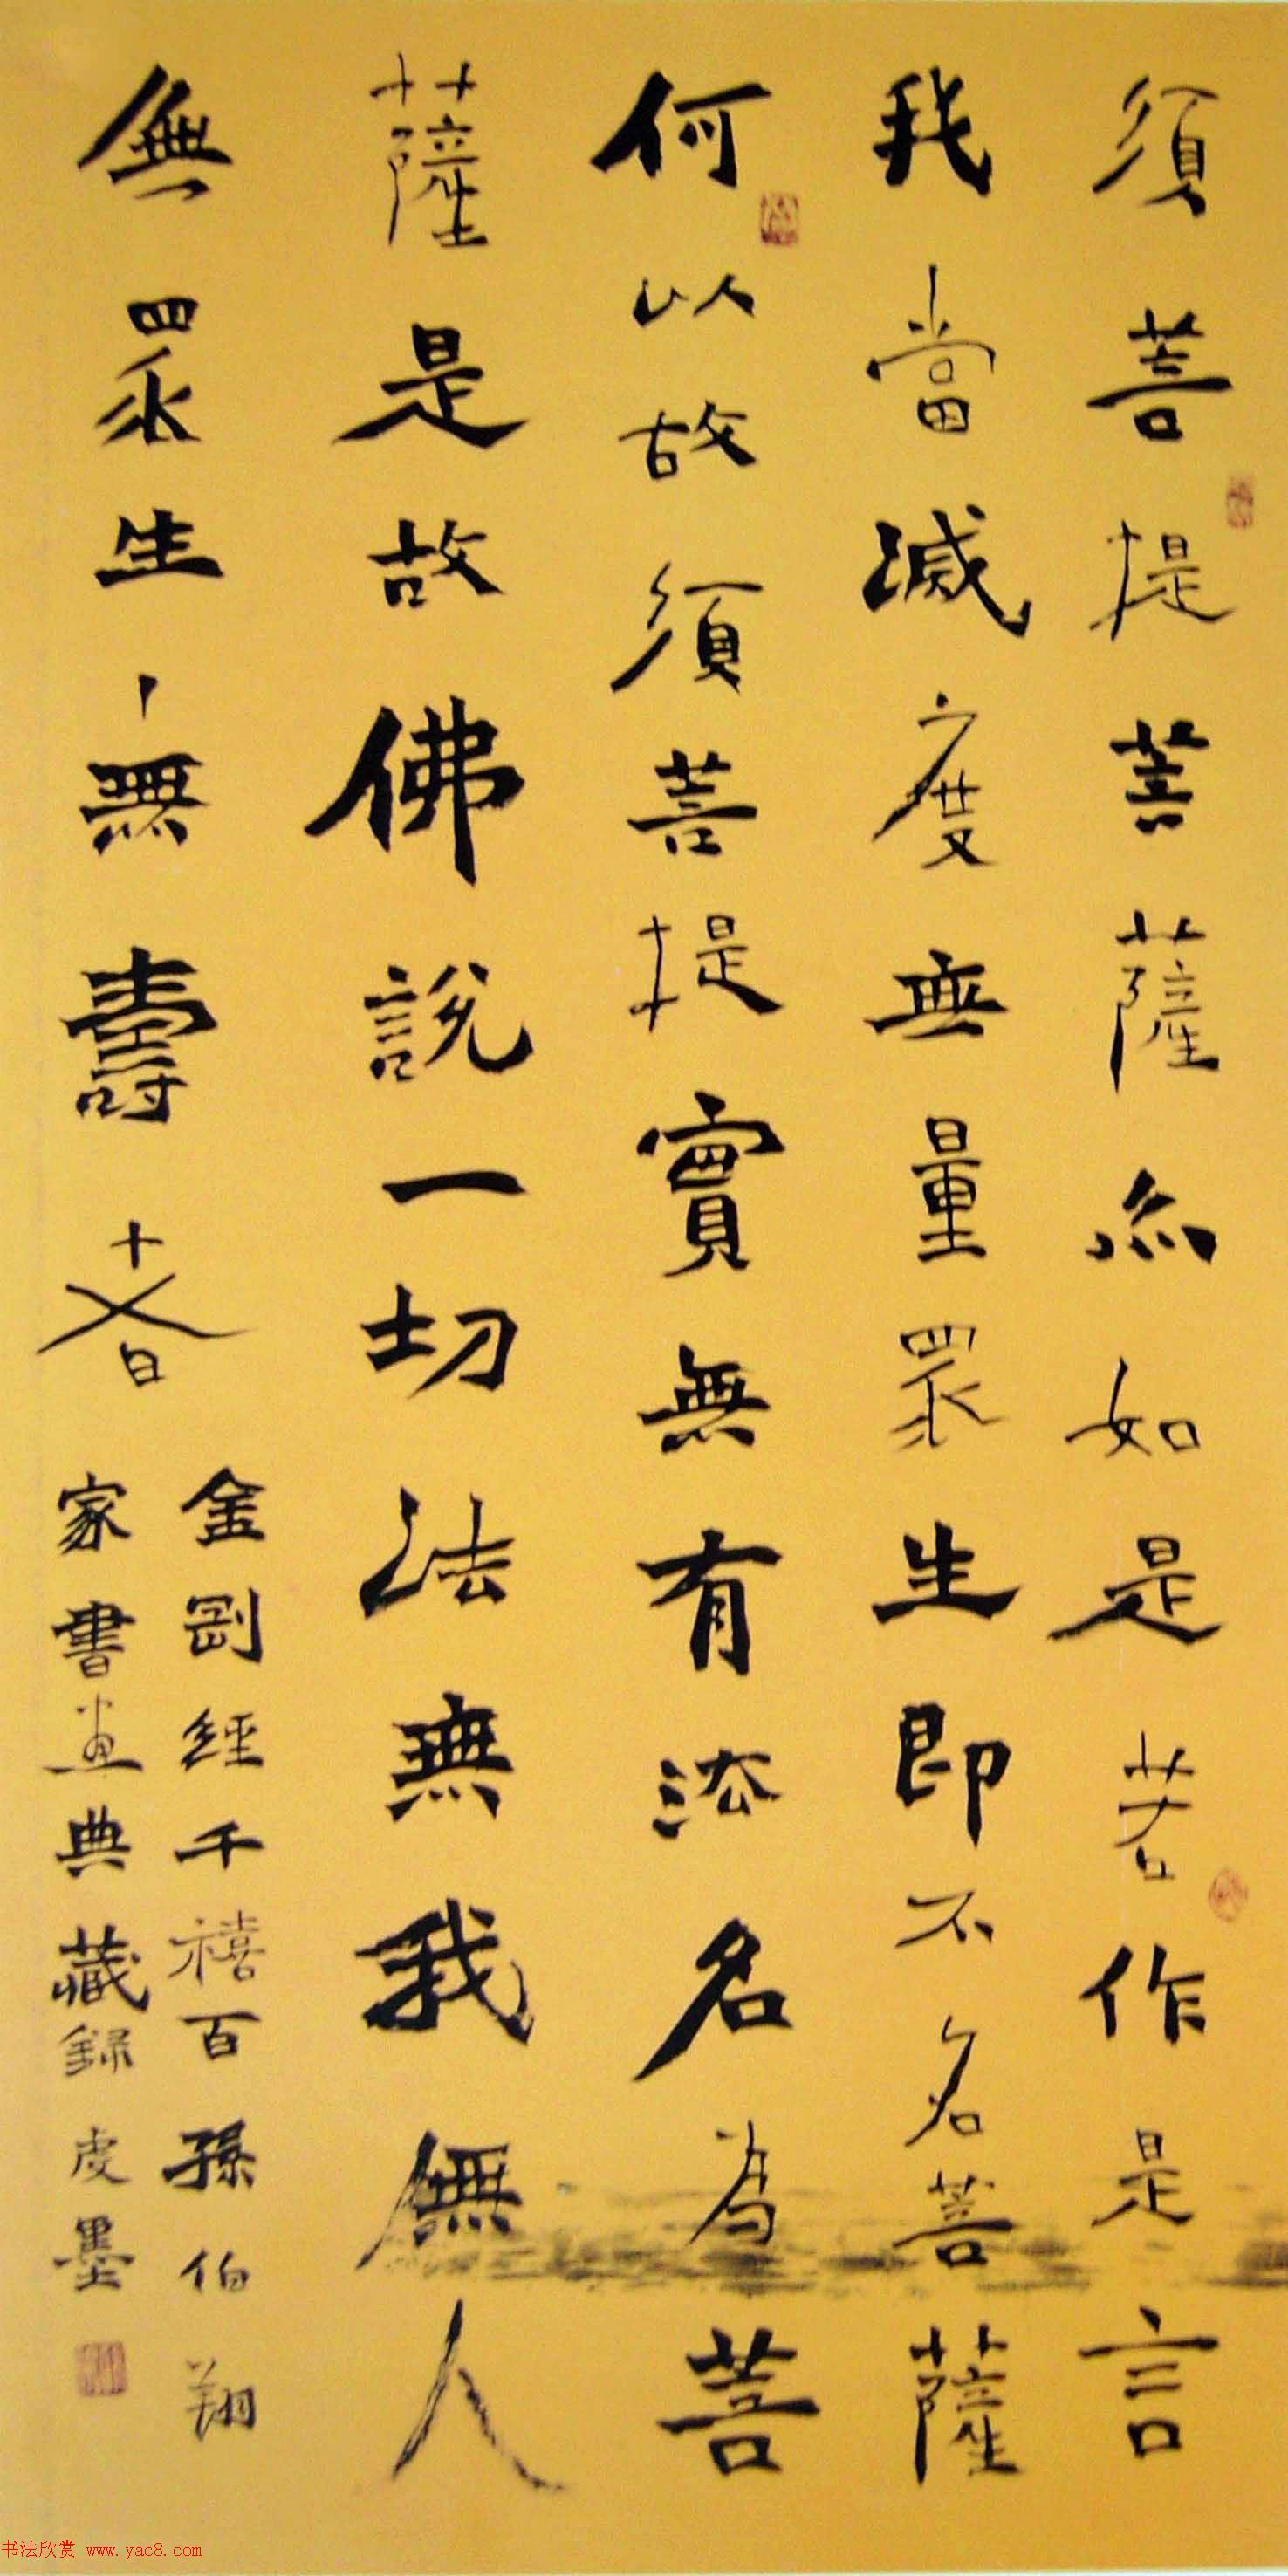 須菩提菩薩亦如是若作是言
我當滅度無量眾生即不名菩薩
何以故須菩提實無有法名為菩
薩是故佛說一切法無我無人
無眾生丶無壽者
金剛經千禧百孫伯翔
家書畫典藏錄虔墨
书法欣赏 www.yac8.com